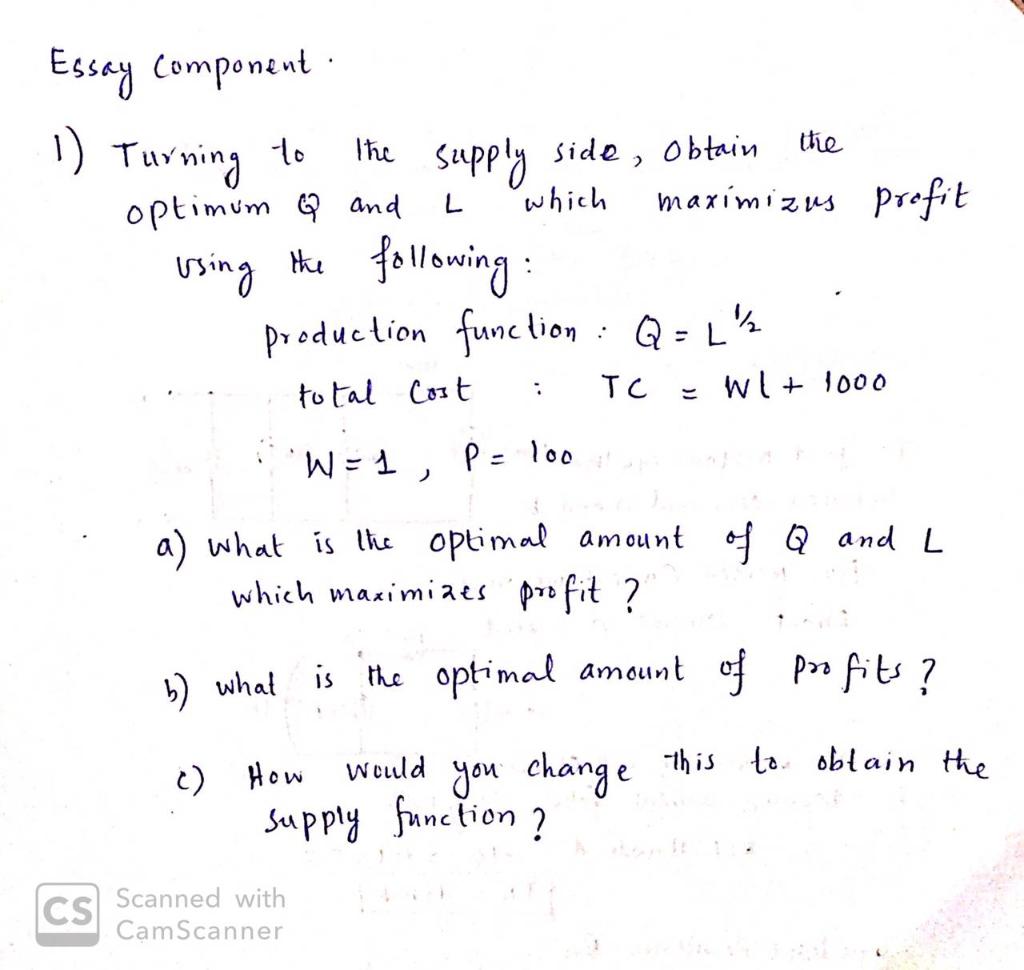 Essay Component.
1) Turning to the supply side, obtain the
optimum Q and L which maximizes profit
using the following:
production function: Q = L^1/2
total Cost : TC = Wl + 1000
W = 1, P = 100
a) what is the optimal amount of Q and L
which maximizes profit?
b) what is the optimal amount of profits?
c) How would you change this to obtain the
supply function?
CS Scanned with
CamScanner